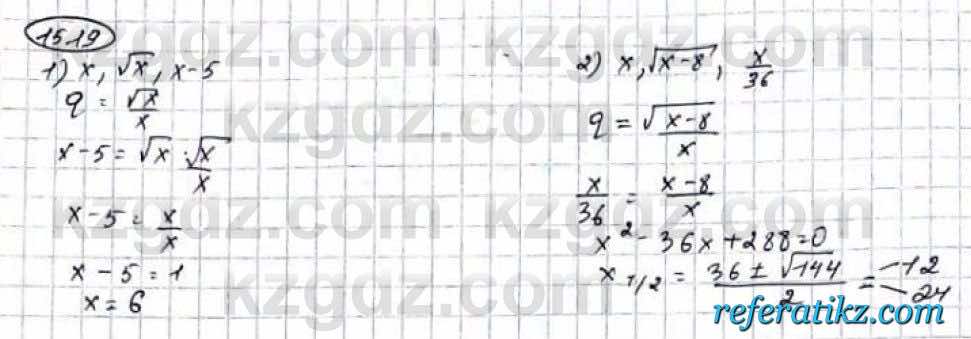 1519
1) x, √x, x-5
q = √x/x
x-5 = √x · √x/x
x-5 = x/x
x-5 = 1
x = 6
2) x, √x-8, x/36
q = √x-8/x
x/36 = x-8/x
x² - 36x + 288 = 0
x 1/2 = 36 ± √144/2 = -12
-24
kzgdz.com
referatikz.com